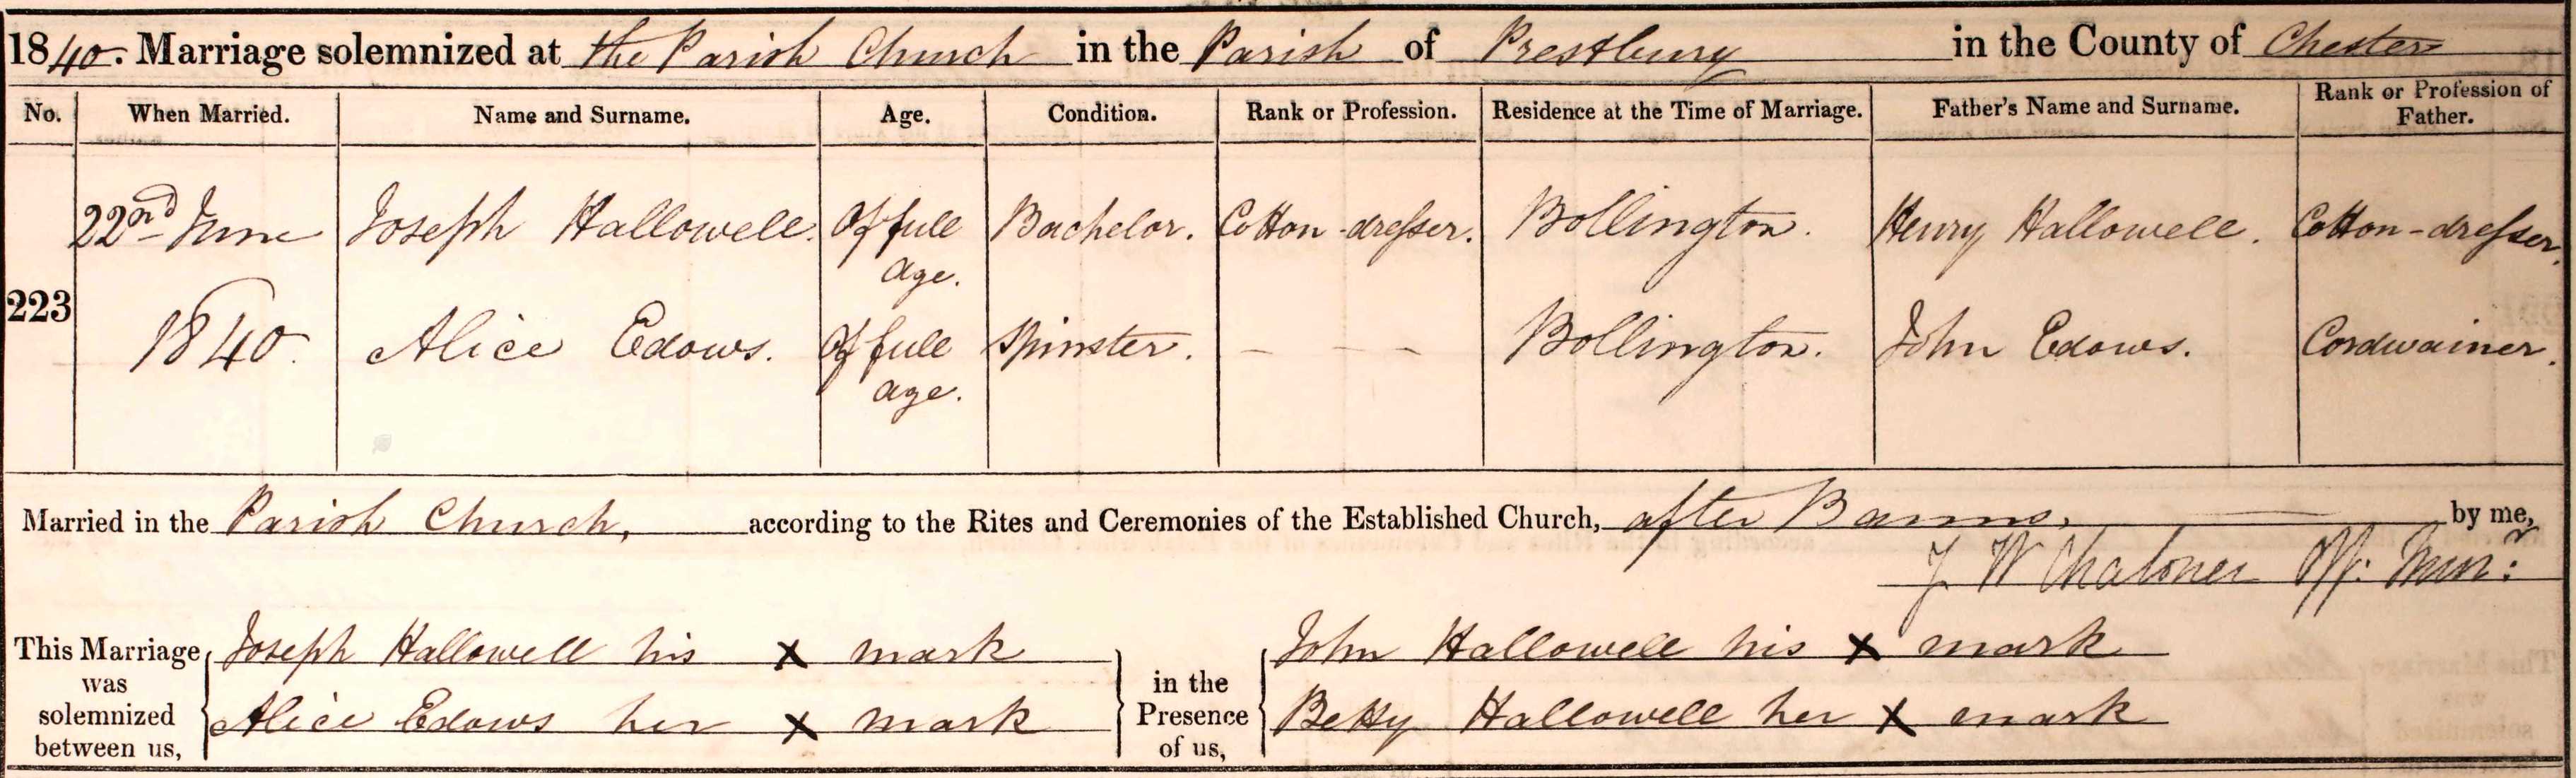 1840. Marriage solemnized at the Parish Church in the Parish of Prestbury in the County of Chester
No. When Married. Name and Surname. Age. Condition. Rank or Profession. Residence at the Time of Marriage. Father's Name and Surname. Rank or Profession of Father.
223
22nd June Joseph Hallowell. Of full age. Bachelor. Cotton-dresser. Bollington. Henry Hallowell. Cotton-dresser.
1840. Alice Edows. Of full age. Spinster. - - - Bollington. John Edows. Cordwainer.
Married in the Parish Church, according to the Rites and Ceremonies of the Established Church, after Banns, by me,
J W Chaloner Off: Minr:
This Marriage was solemnized between us,
Joseph Hallowell his X mark
Alice Edows her X mark
in the Presence of us,
John Hallowell his X mark
Betty Hallowell her X mark